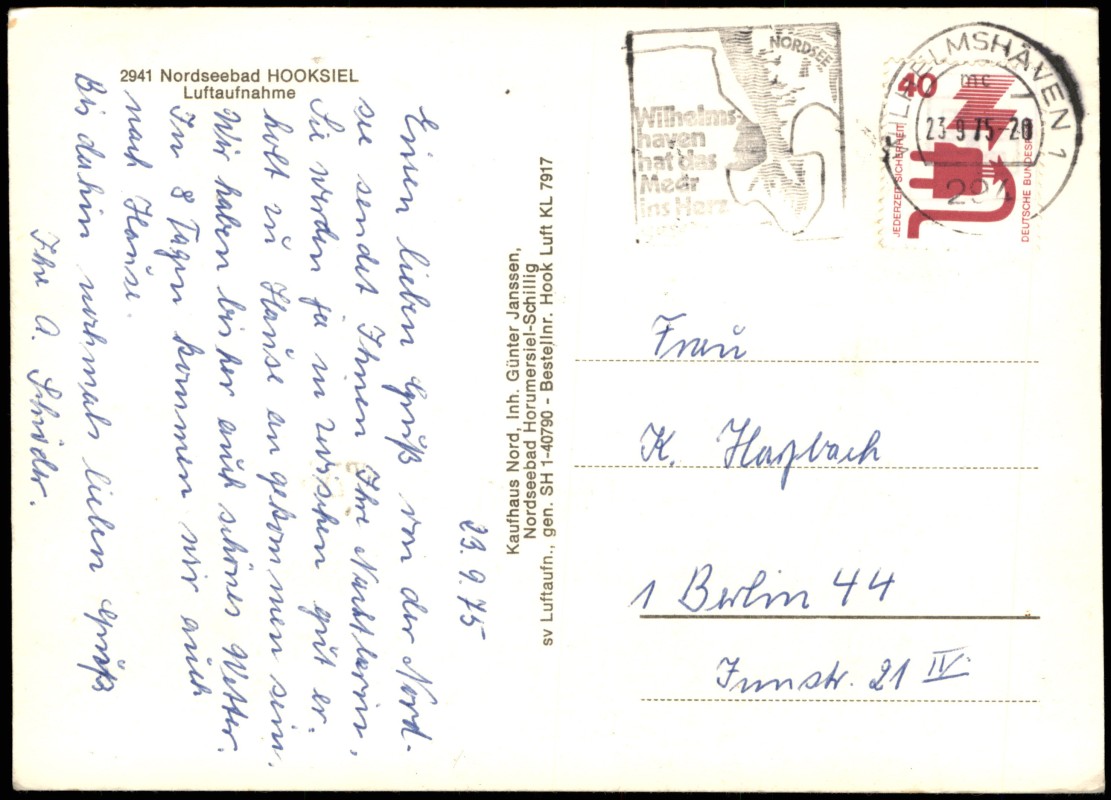 2941 Nordseebad HOOKSIEL
Luftaufnahme
23.9.75
Einen lieben Gruß von der Nord-
see sendet Ihnen Ihre Nachbarin,
Sie werden ja in zwischen gut er.
holt zu Hause an gekommen sein.
Wir haben bis her auch schönes Wetter.
In 8 Tagen kommen wir auch
nach Hause.
Bis dahin nochmals lieben Gruß
Ihre A. Schröder.
Kaufhaus Nord, Inh. Günter Janssen,
Nordseebad Horumersiel-Schillig
sv Luftaufn., gen. SH 1-40790 - Bestellnr. Hook Luft KL 7917
NORDSEE
Wilhelms-
haven
hat das
Meer
ins Herz
WILHELMSHAVEN 1
mc
23.9.75-20
294
40
JEDERZEIT SICHERHEIT
DEUTSCHE BUNDESPOST
Frau
K.
1 Berlin 44
Innstr. 21 IV.